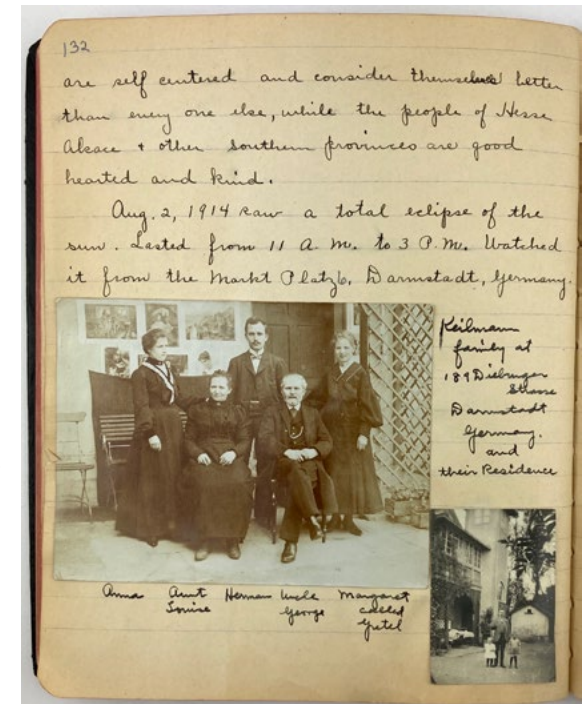 132
are self centered and consider themselves better
than every one else, while the people of Hesse
Alsace + other Southern provinces are good
hearted and kind.
Aug. 2, 1914 saw a total eclipse of the
sun. Lasted from 11 A.M. to 3 P.M. Watched
it from the Markt Platz, Darmstadt, Germany.
Keilmann
family at
189 Dieburger
Strasse
Darmstadt
Germany.
and
their Residence
Anna Aunt Louise Herman Uncle George Margaret called Gretel